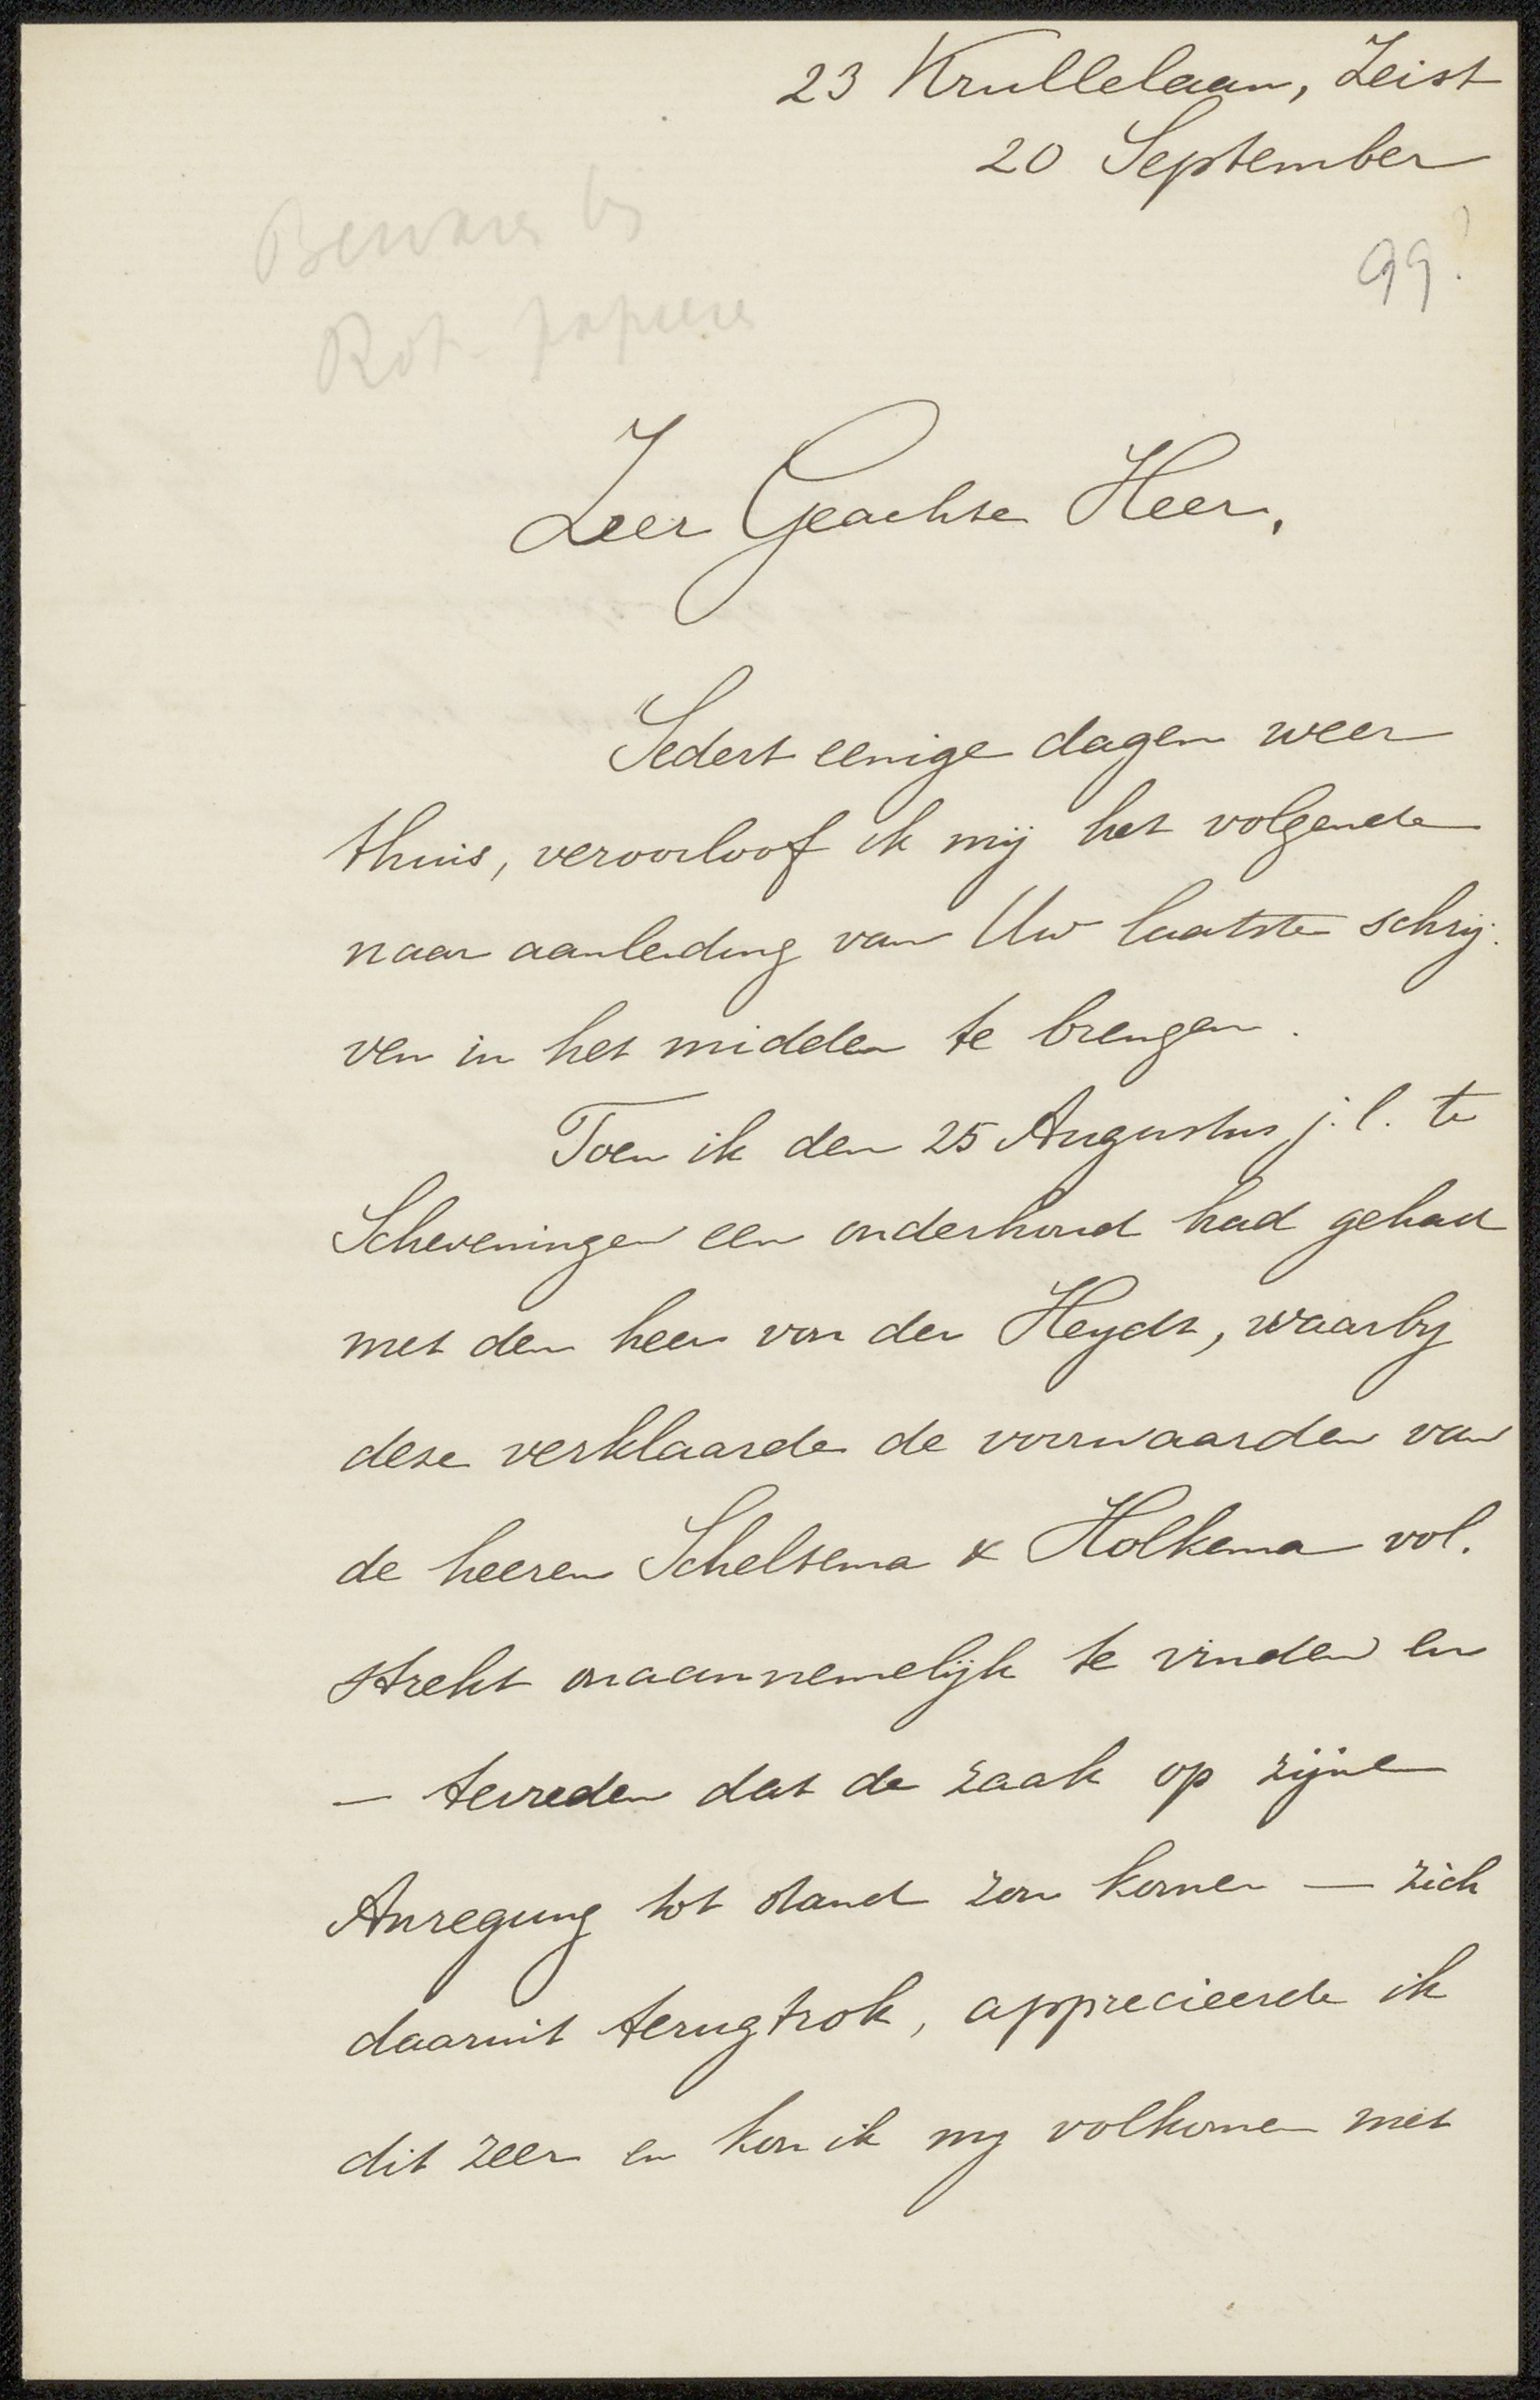 23 Krullelaan, Zeist
20 September
99?
Bewaren bij
Rot. papieren
Zeer Geachte Heer,
Sedert eenige dagen weer
thuis, veroorloof ik mij het volgende
naar aanleiding van Uw laatste schrij-
ven in het midden te brengen.
Toen ik den 25 Augustus j.l. te
Scheveningen een onderhoud had gehad
met den heer von der Heydt, waarby
deze verklaarde de voorwaarden van
de heeren Scheltema & Holkema vol-
strekt onaannemelijk te vinden en
— tevreden dat de zaak op zijne
Anregung tot stand zou komen — zich
daaruit terugtrok, apprecieerde ik
dit zeer en kon ik my volkomen met